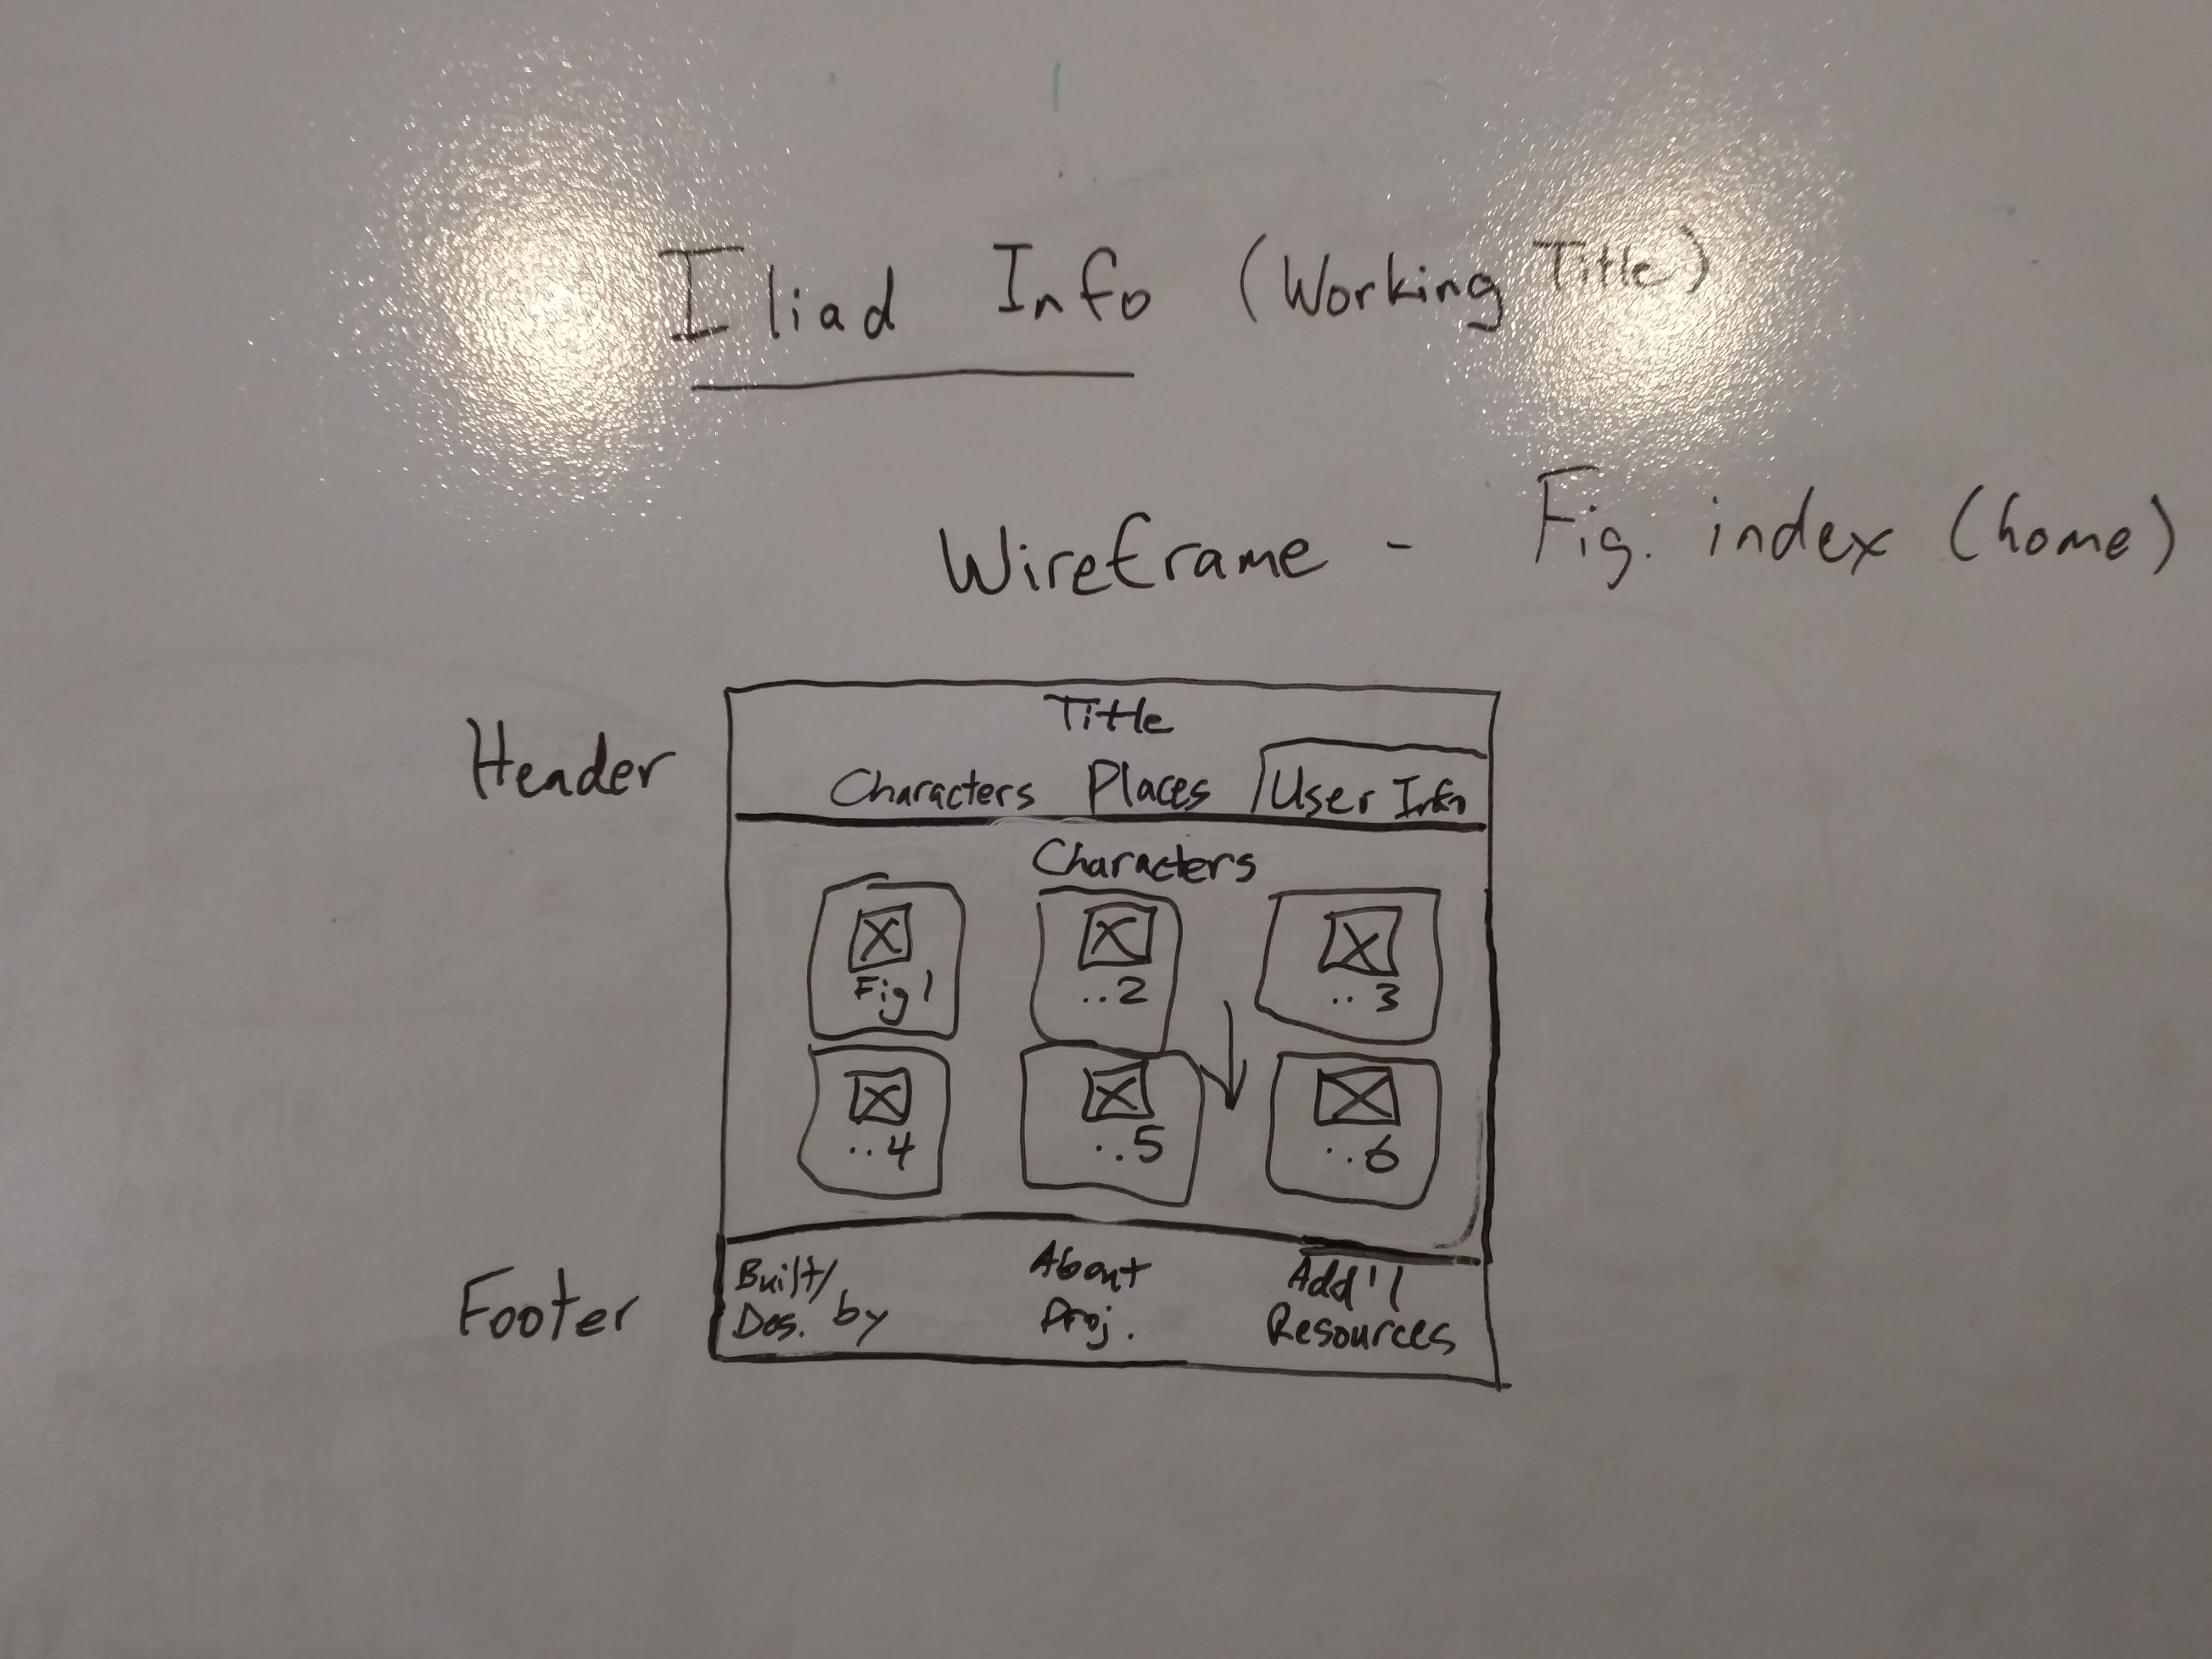 Iliad Info (Working Title)
Wireframe - Fig. index (home)
Header
Title
Characters Places User Info
Characters
Fig 1 ..2 ..3
..4 ..5 ..6
Footer
Built/ About Add'l
Des. by Proj. Resources